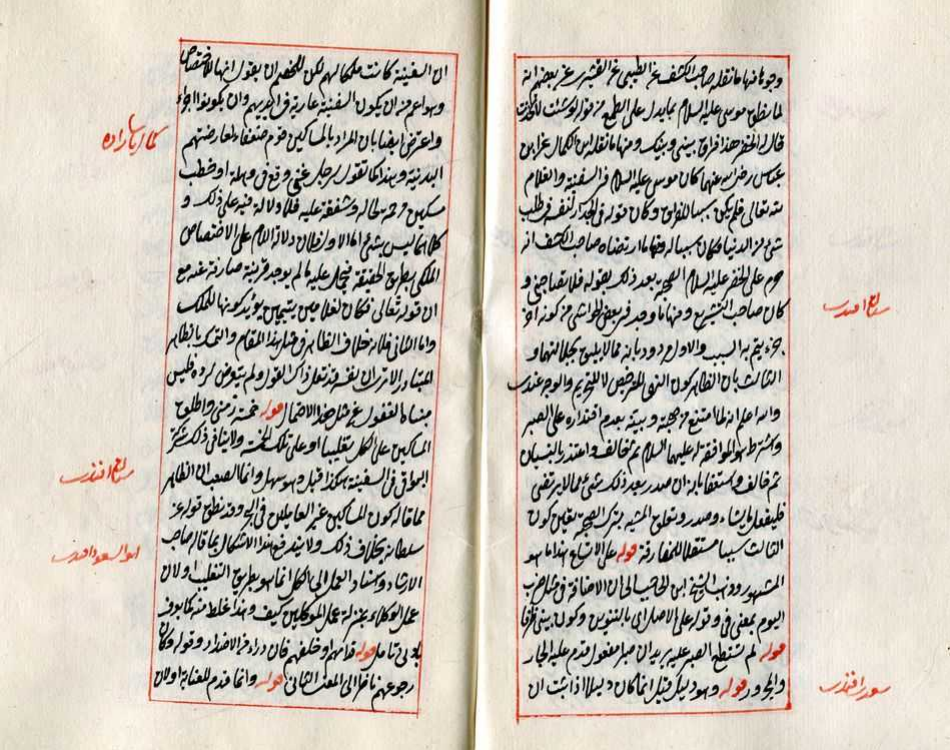 وجوهًا منها ما نقله صاحب الكشف عن الطيبي عن القشيري عن بعضهم انه
لما نطق موسى عليه السلام بما يدل على الطمع من قوله لو شئت لاتخذت
قال له الخضر هذا فراق بيني وبينك ومنها ما نقله ابن الكمال عن ابن
عباس رضي الله عنهما كان موسى عليه السلام في السفينة والغلام
لله تعالى فلم يكن سببا للفراق وكان قوله في الجدار لنفسه في طلب
شئ من الدنيا فكان سببا له ومنها ما ارتضاه صاحب الكشف انه
حرم على الخضر عليه السلام الصحبة بعد ذلك بقوله فلا تصاحبني و
كان صاحب التشريع ومنها ما وجد في بعض الحواشي من كونه اخر
جزء يتم به السبب والاول مردود بانه مما لا يليق بجلالتهما و
الثالث بان الظاهر كون النهي للترخيص لا للتحريم والوجه عندي
والله اعلم انه لما امتنع من صحبة وبينه بعدم اقتداره على الصبر
واشترط هو الموافقة عليهما السلام ثم خالف واعتذر بالنسيان
ثم خالف واستعفا بانه ان صدر بعد ذلك شئ مما لا يرتضى
فليفعل ما يشاء وصدر وتعلق المشية بترك الصحبة تعين كون
الثالث سببا مستقلا للمفارقة قوله على الاتساع هذا ما هو
المشهور وذهب الشيخ ابن الحاجب الى ان الاضافة في مثل ضرب
اليوم بمعنى في وقوله على الاصل اي بالتنوين وكون بيني ظرفا
قوله لم تستطع الصبر عليه يريد ان صبرا مفعول قدم عليه الجار
والمجرور قوله وهو دليل قيل انما كان دليلا اذا ثبت ان
سعدي افندي
ان السفينة كانت ملكا لهم لكن للخصم ان يقول انها للاختصاص
وهو اعم من ان يكون السفينة عارية في ايديهم وان يكونوا اجراء
واعترض ايضا بان المراد بالمساكين قوم ضعفاء لعارضتهم
البدنية وهذا كما تقول لرجل غني وقع في وهلة او خطب
مسكين ترحما لحاله وشفقة عليه فلا دلالة فيه على ذلك و
كلاهما ليس بشئ اما الاول فلان دلالة اللام على الاختصاص
الملكي بطريق الحقيقة فيحمل عليه ما لم يوجد قرينة صارفة عنه مع
ان قوله تعالى فكان لغلامين يتيمين يؤيد كونها للملك
واما الثاني فلانه خلاف الظاهر في مثل هذا المقام والتمسك بالظاهر
المتبادر الا ترى ان نفسه قد نقل ذاك القول ولم يتعرض لرده فليس
مبناه الغفول عن مثل هذا الاحتمال قوله خمسة زمني واطلق
المساكين على الكل تغليبا او على تلك الخمسة ولا ينافي ذلك شركة
البواقي في السفينة هكذا قيل وهو سهل وانما الصعب ان الظاهر
مما قاله كون المساكين غير العاملين في البحر وقد نطق قوله عز
سلطانه بخلاف ذلك ولا يندفع هذا الاشكال بما قاله صاحب
الارشاد واسناد العمل الى الكل انما هو بطريق التغليب او لان
عمل الوكلاء بمنزلة عمل الموكلين كيف وهذا غلط منه كما يعرف
بادنى تامل قوله قدامهم او خلفهم فان وراء من الاضداد وقوله وكان
رجوعهم ناظرا الى المعنى الثاني قوله وانما قدم للعناية او لان
كمال پاشا زاده
ابو السعود افندي